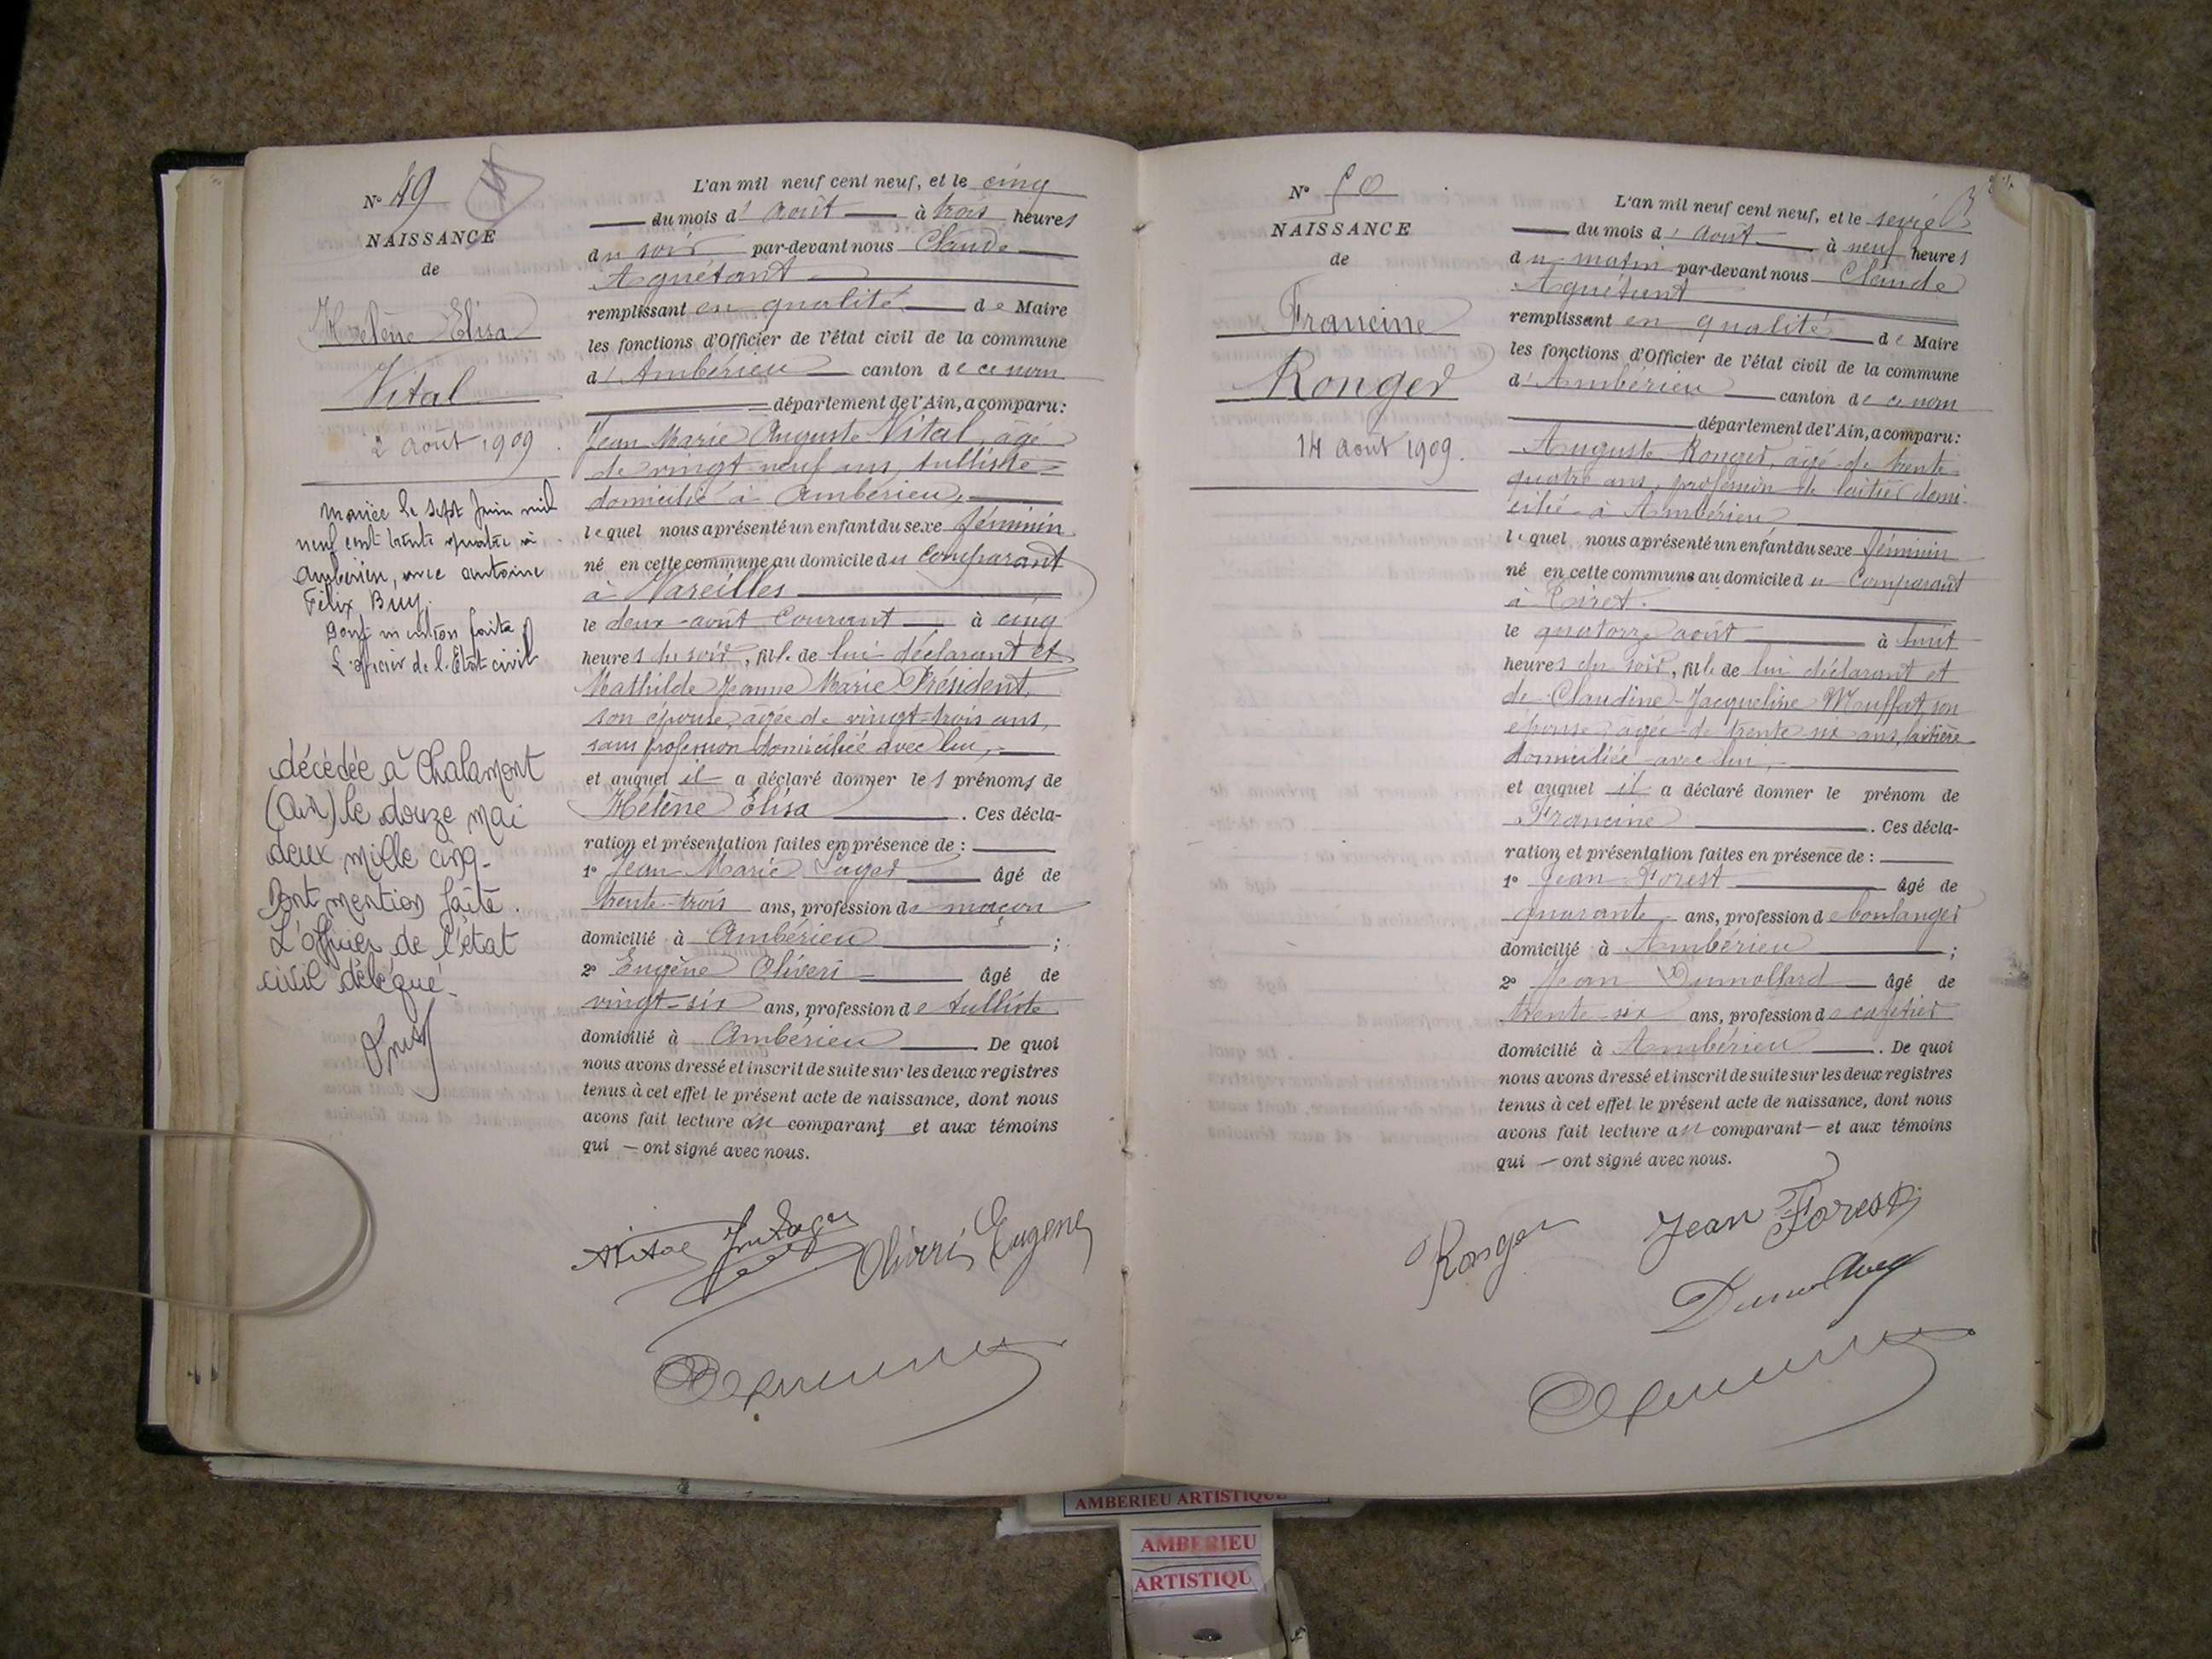 N° 49
NAISSANCE
de
Hélène Elisa
Vital
2 août 1909
mariée le sept Juin mil
neuf cent trente quatre à
Ambérieu, avec Antoine
Félix Buy.
Dont mention faite
L'officier de l'Etat civil
décédée à Chalamont
(Ain) le douze mai
deux mille cinq.
Dont mention faite.
L'officier de l'état
civil délégué.
L'an mil neuf cent neuf, et le cinq
du mois d'août à trois heures
du soir par-devant nous Claude
Aguétant
remplissant en qualité de Maire
les fonctions d'Officier de l'état civil de la commune
d'Ambérieu canton de ce nom
département de l'Ain, a comparu:
Jean Marie Auguste Vital, âgé
de vingt neuf ans, tulliste
domicilié à Ambérieu,
lequel nous a présenté un enfant du sexe féminin
né en cette commune au domicile du comparant
à Vareilles
le deux août courant à cinq
heures du soir, fille de lui déclarant et
Mathilde Jeanne Marie Président
son épouse, âgée de vingt-trois ans,
sans profession domiciliée avec lui,
et auquel il a déclaré donner les prénoms de
Hélène Elisa . Ces décla-
ration et présentation faites en présence de :
1° Jean Marie âgé de
trente-trois ans, profession de maçon
domicilié à Ambérieu ;
2° Eugène Oliveri âgé de
vingt-six ans, profession de tulliste
domicilié à Ambérieu . De quoi
nous avons dressé et inscrit de suite sur les deux registres
tenus à cet effet le présent acte de naissance, dont nous
avons fait lecture au comparant et aux témoins
qui — ont signé avec nous.
Vital Oliveri Eugene
N° 50
NAISSANCE
de
Francine
Ronger
14 août 1909.
L'an mil neuf cent neuf, et le
du mois d'août à neuf heures
du matin par-devant nous Claude
Aguétant
remplissant en qualité de Maire
les fonctions d'Officier de l'état civil de la commune
d'Ambérieu canton de ce nom
département de l'Ain, a comparu:
Auguste Ronger, âgé de trente
quatre ans, profession de laitier domi-
cilié à Ambérieu
lequel nous a présenté un enfant du sexe féminin
né en cette commune au domicile du comparant
à Tiret.
le quatorze août à huit
heures du soir, fille de lui déclarant et
de Claudine Jacqueline Mouffat, son
épouse, âgée de trente six ans, laitière
domiciliée avec lui,
et auquel il a déclaré donner le prénom de
Francine . Ces décla-
ration et présentation faites en présence de :
1° Jean Forest âgé de
quarante ans, profession de boulanger
domicilié à Ambérieu ;
2° Jean Dumollard âgé de
trente six ans, profession de cafetier
domicilié à Ambérieu . De quoi
nous avons dressé et inscrit de suite sur les deux registres
tenus à cet effet le présent acte de naissance, dont nous
avons fait lecture au comparant — et aux témoins
qui — ont signé avec nous.
Ronger Jean Forest
AMBERIEU ARTISTIQUE
AMBERIEU
ARTISTIQU